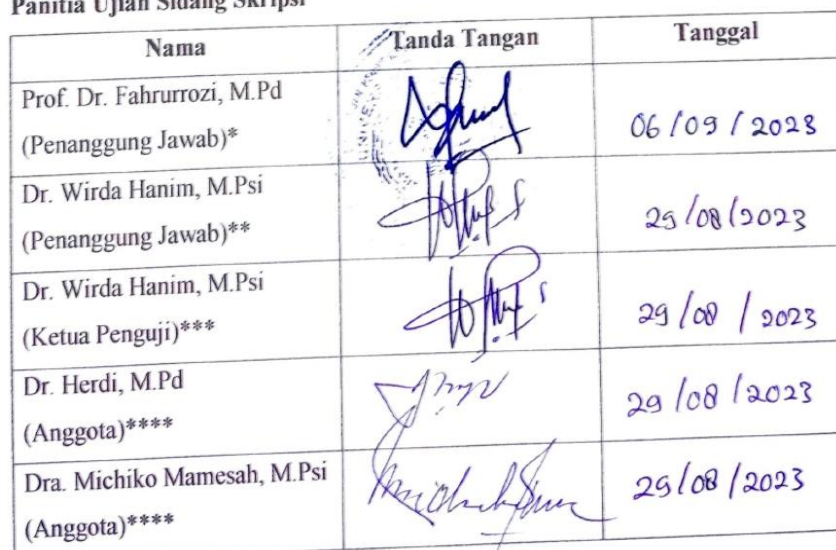 Panitia Ujian Sidang Skripsi
Nama Tanda Tangan Tanggal
Prof. Dr. Fahrurrozi, M.Pd
(Penanggung Jawab)*
06/09/2023
Dr. Wirda Hanim, M.Psi
(Penanggung Jawab)**
29/08/2023
Dr. Wirda Hanim, M.Psi
(Ketua Penguji)***
29/08/2023
Dr. Herdi, M.Pd
(Anggota)****
29/08/2023
Dra. Michiko Mamesah, M.Psi
(Anggota)****
29/08/2023